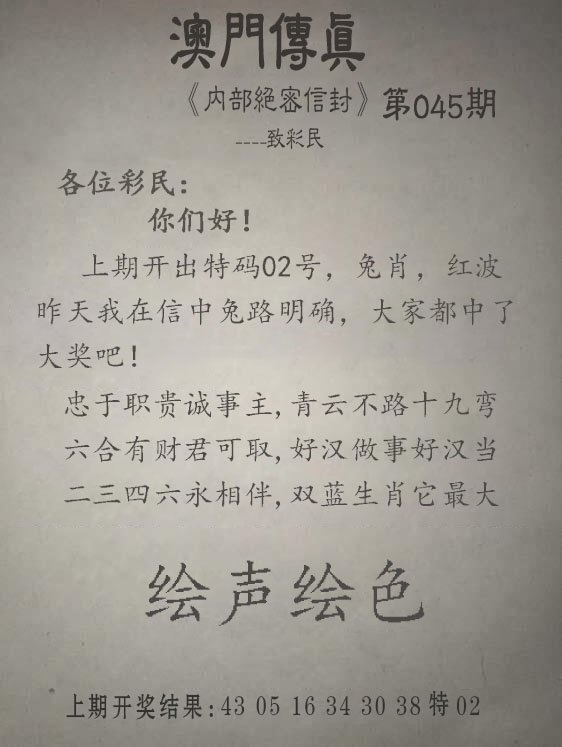 澳門傳眞
《内部絕密信封》第045期
----致彩民
各位彩民：
你们好！
上期开出特码02号，兔肖，红波
昨天我在信中兔路明确，大家都中了
大奖吧！
忠于职贵诚事主,青云不路十九弯
六合有财君可取,好汉做事好汉当
二三四六永相伴,双蓝生肖它最大
绘声绘色
上期开奖结果:43 05 16 34 30 38 特 02